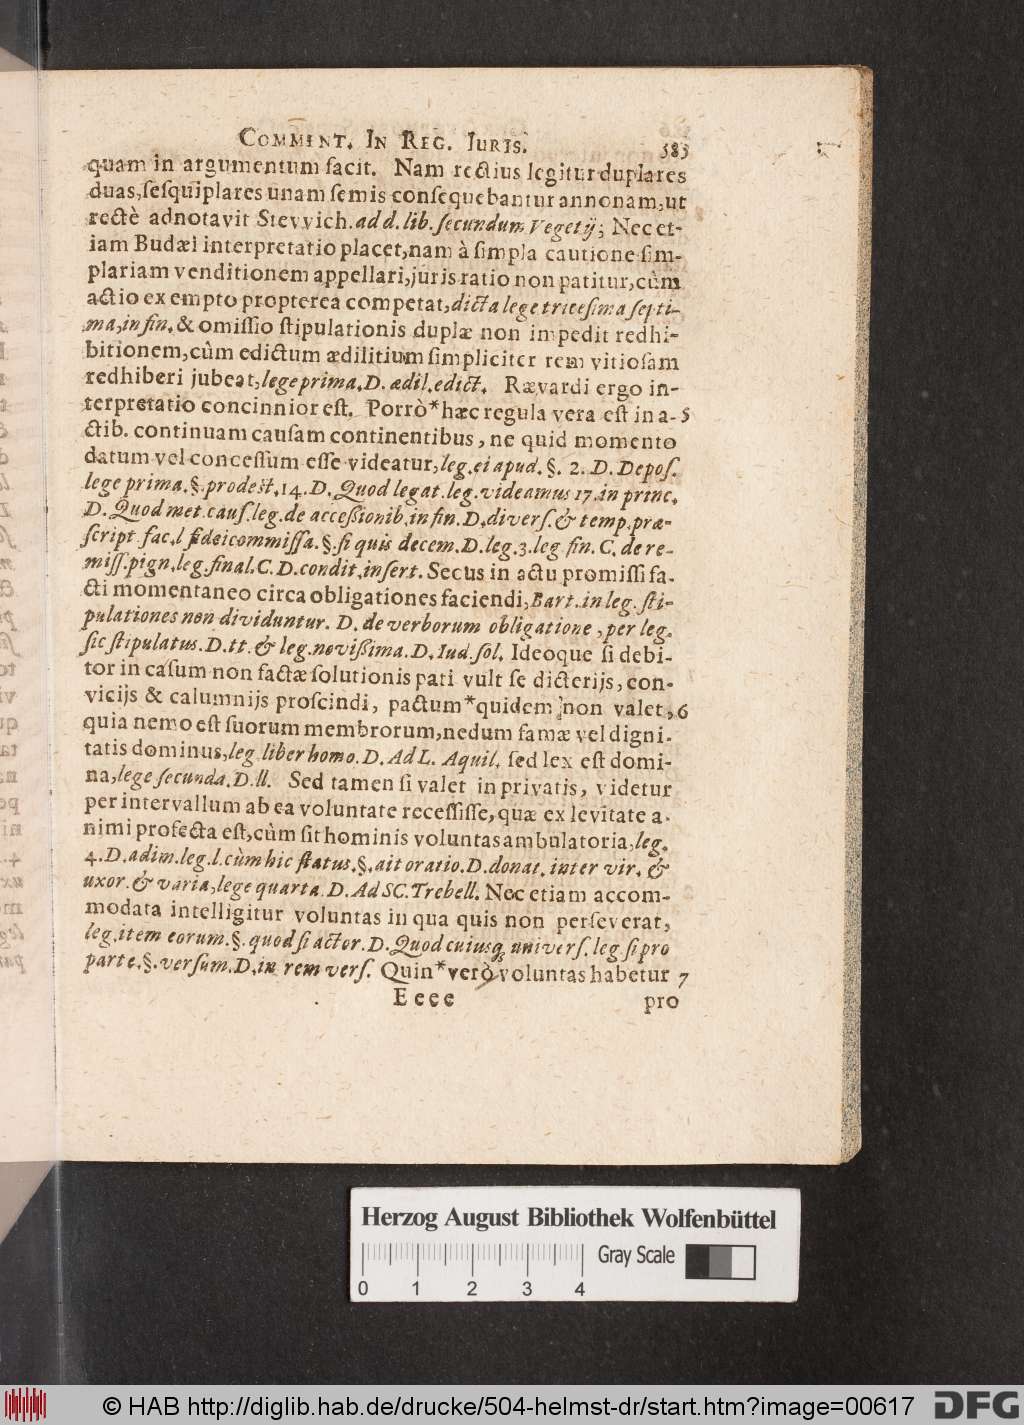 COMMENT. IN REG. IURIS. 585
quam in argumentum facit. Nam rectius legitur duplares
duas, ſeſquiplares unam ſemis conſequebantur annonam, ut
rectè adnotavit Stevvich. ad d. lib. ſecundum Vegetij; Nec et-
iam Budæi interpretatio placet, nam à ſimpla cautione ſim-
plariam venditionem appellari, juris ratio non patitur, cùm
actio ex empto propterea competat, dicta lege triceſima ſepti-
ma, in fin. & omiſſio ſtipulationis duplæ non impedit redhi-
bitionem, cùm edictum ædilitium ſimpliciter rem vitioſam
redhiberi jubeat, lege prima. D. ædil. edict. Rævardi ergo in-
terpretatio concinnior eſt. Porrò * hæc regula vera eſt in a- 5
ctib. continuam cauſam continentibus, ne quid momento
datum vel conceſſum eſſe videatur, leg. ei apud. §. 2. D. Depoſ.
lege prima. §. prodeſt. 14. D. Quod legat. leg. videamus 17. in princ.
D. Quod met. cauſ. leg. de acceßionib. in fin. D. diverſ. & temp. præ-
ſcript. fac. l fideicommiſſa. §. ſi quis decem. D. leg. 3. leg fin. C. de re-
miſſ. pign. leg. final. C. D. condit. inſert. Secus in actu promiſſi fa-
cti momentaneo circa obligationes faciendi, Bart. in leg. ſti-
pulationes non dividuntur. D. de verborum obligatione, per leg.
ſic ſtipulatus. D. tt. & leg. novißima. D. Iud. ſol. Ideoque ſi debi-
tor in caſum non factæ ſolutionis pati vult ſe dicterijs, con-
vicijs & calumnijs proſcindi, pactum * quidem non valet, 6
quia nemo eſt ſuorum membrorum, nedum famæ vel digni-
tatis dominus, leg. liber homo. D. Ad L. Aquil. ſed lex eſt domi-
na, lege ſecunda. D. ll. Sed tamen ſi valet in privatis, videtur
per intervallum ab ea voluntate receſſiſſe, quæ ex levitate a-
nimi profecta eſt, cùm ſit hominis voluntas ambulatoria, leg.
4. D. adim. leg. l. cùm hic ſtatus. §. ait oratio. D. donat. inter vir. &
uxor. & varia, lege quarta. D. Ad SC. Trebell. Nec etiam accom-
modata intelligitur voluntas in qua quis non perſeverat,
leg. item eorum. §. quod ſi actor. D. Quod cuiusq; univerſ. leg ſi pro
parte. §. verſum. D. in rem verſ. Quin * verò voluntas habetur 7
Eeee pro
Herzog August Bibliothek Wolfenbüttel
Gray Scale
0 1 2 3 4
© HAB http://diglib.hab.de/drucke/504-helmst-dr/start.htm?image=00617
DFG